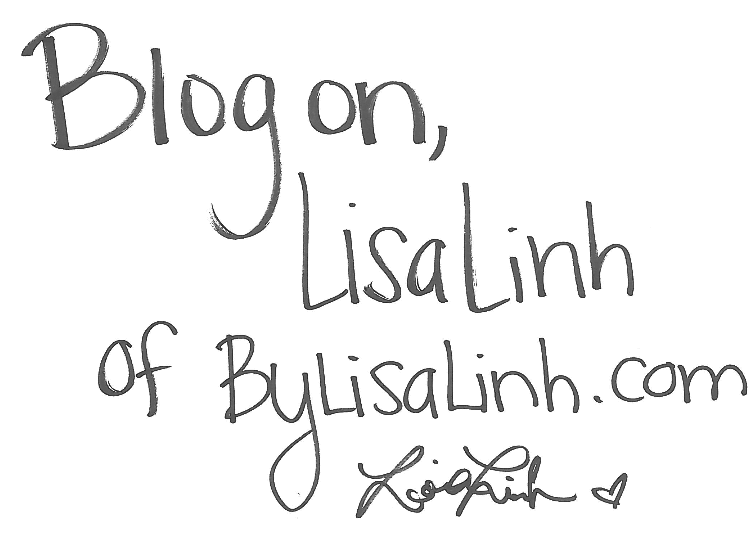 Blog on,
LisaLinh
of ByLisaLinh.com
LisaLinh